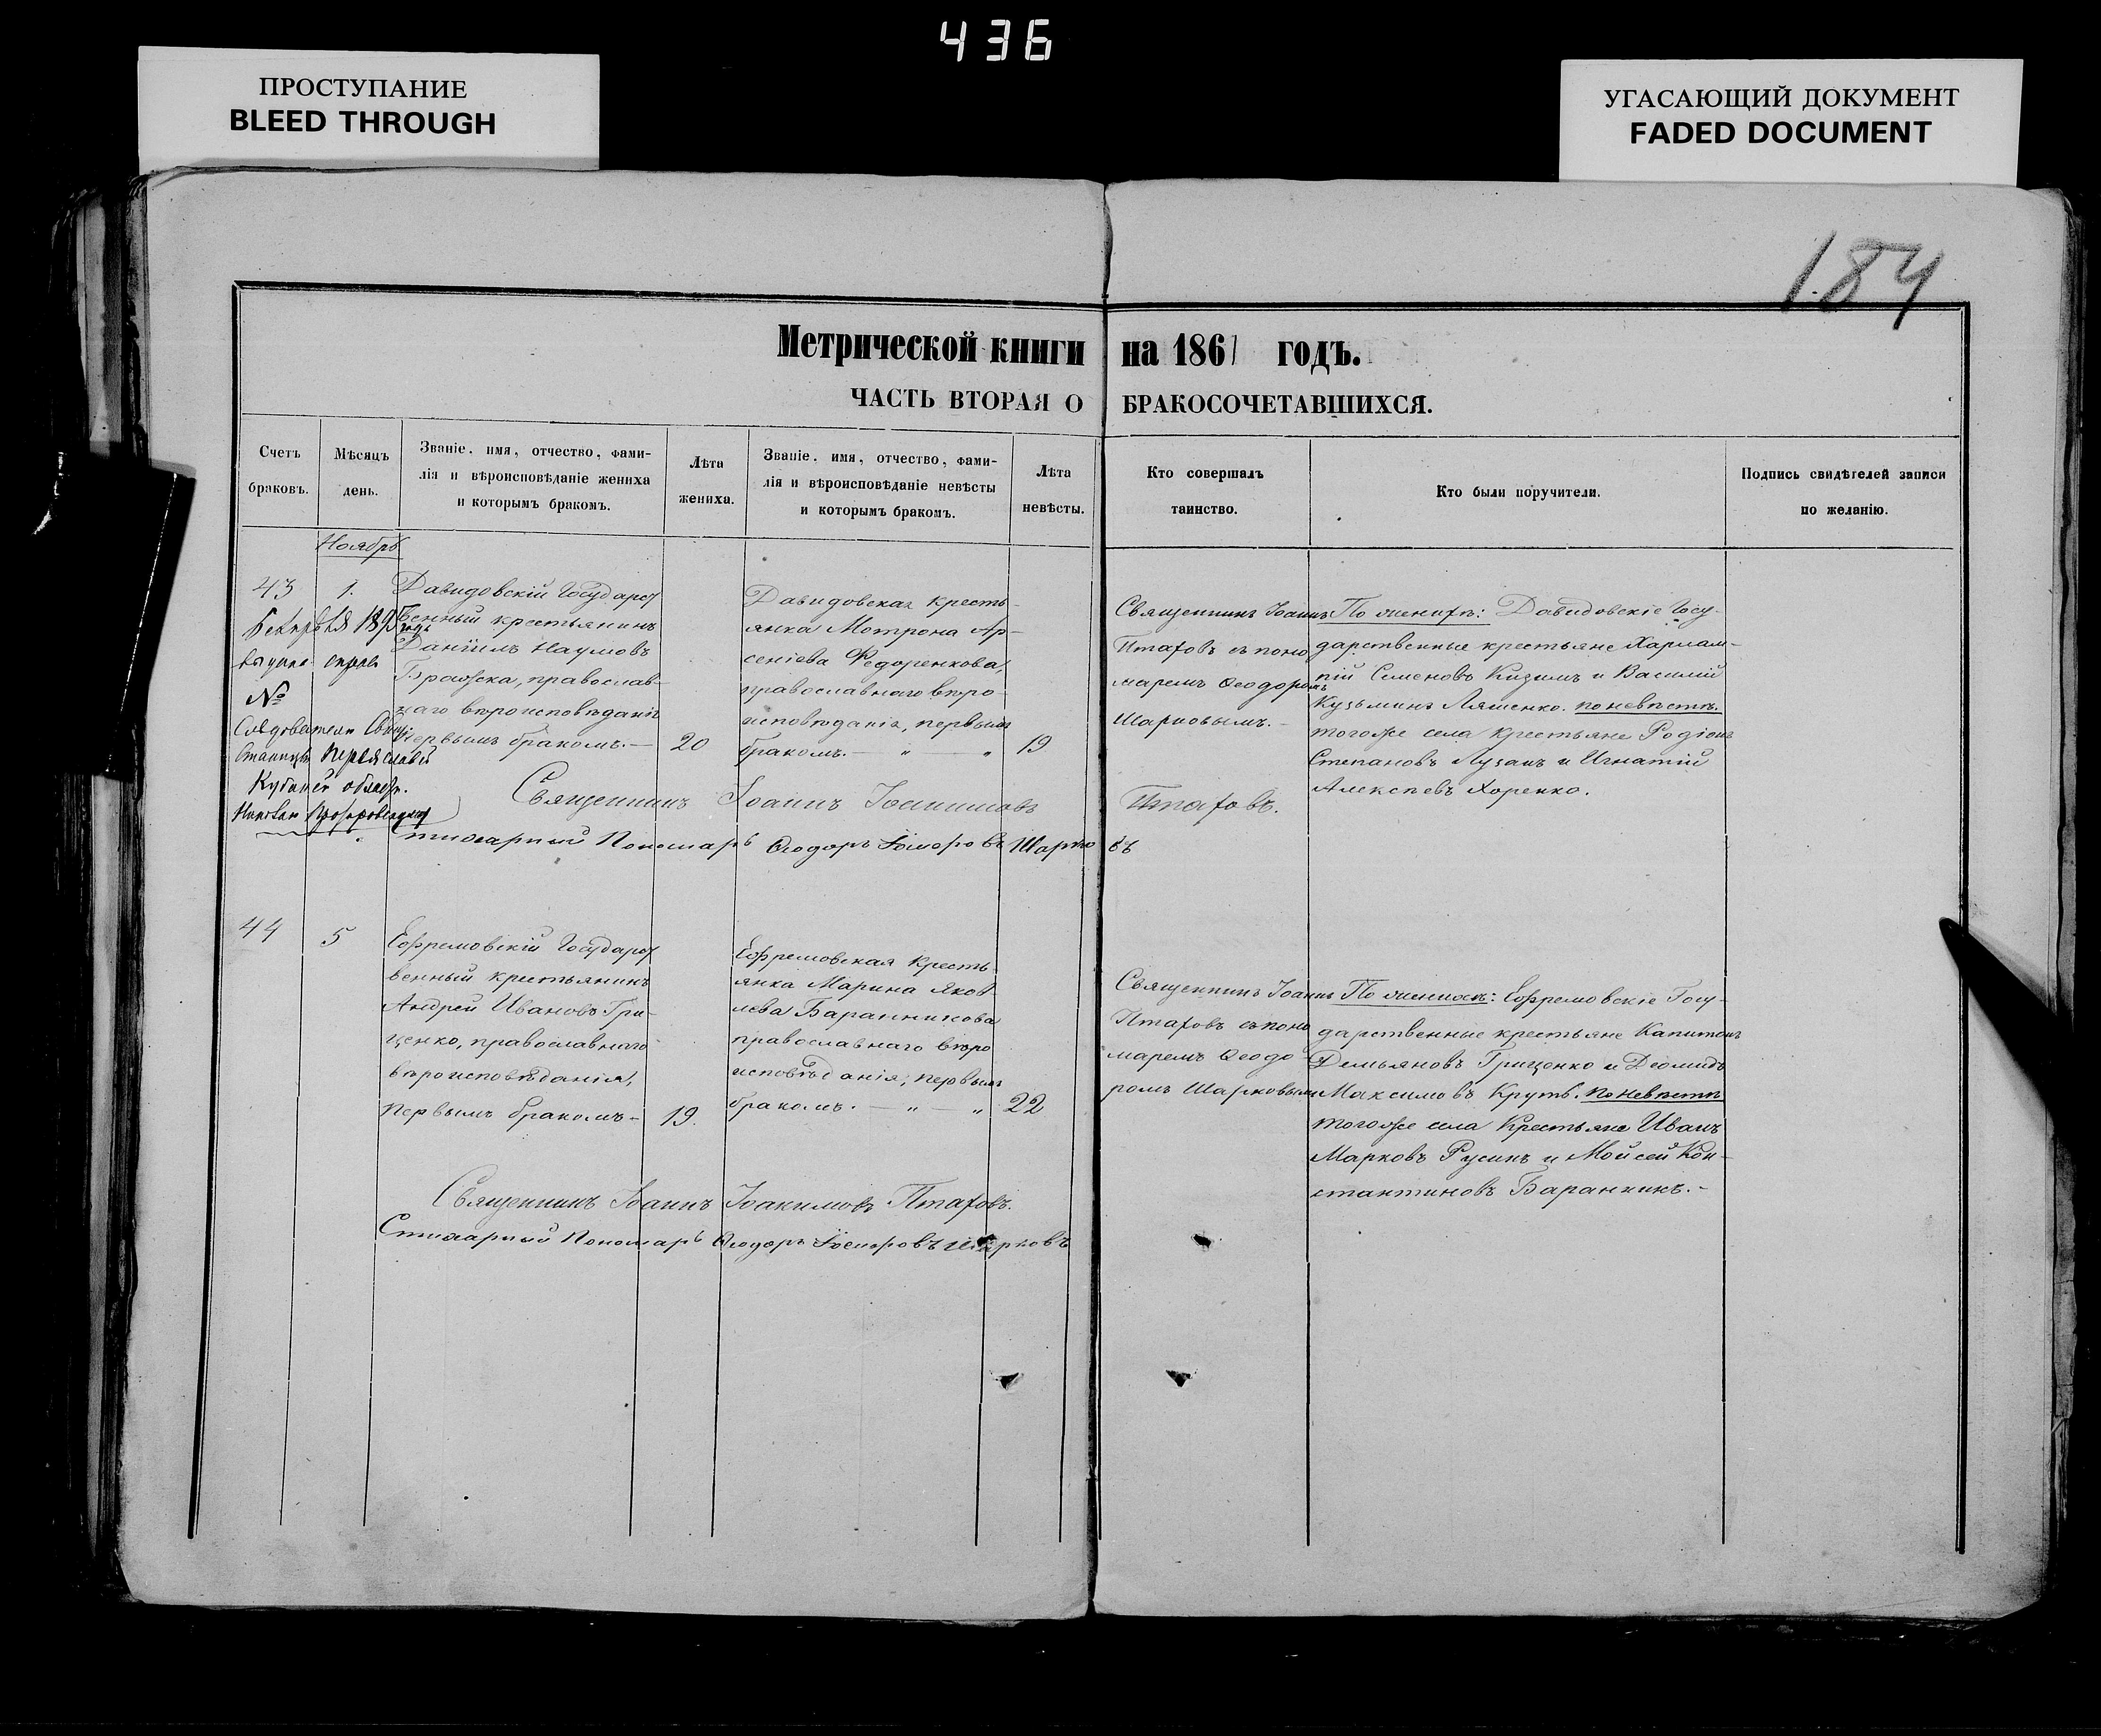 436
ПРОСТУПАНИЕ
BLEED THROUGH
УГАСАЮЩИЙ ДОКУМЕНТ
FADED DOCUMENT
184
Метрической книги на 1861 годъ.
ЧАСТЬ ВТОРАЯ О БРАКОСОЧЕТАВШИХСЯ.
Счетъ
браковъ.
Мѣсяцъ
день.
Званіе, имя, отчество, фами-
лія и вѣроисповѣданіе жениха
и которымъ бракомъ.
Лѣта
жениха.
Званіе, имя, отчество, фами-
лія и вѣроисповѣданіе невѣсты
и которымъ бракомъ.
Лѣта
невѣсты.
Кто совершалъ
таинство.
Кто были поручители.
Подпись свидѣтелей записи
по желанію.
Ноябрь
43
1.
Давидовскій Государст
венный крестьянинъ
Даніилъ Наумовъ
православ-
наго вѣроисповѣданія
первымъ бракомъ. —
20
Давидовская кресть-
янка Мотрона Ар-
сеніева Федоренкова,
православнаго вѣро-
исповѣданія, первымъ
бракомъ. — „ „
19
Священникъ Іоаннъ
Птаховъ съ поно
маремъ Ѳеодоромъ
Шарковымъ. -
По женихѣ: Давидовскіе Госу-
дарственные крестьяне Харлам-
пій Семеновъ Кизимъ и Василій
Кузьминъ Ляшенко. по невѣстѣ.
тогоже села крестьяне Родіонъ
Степановъ Лузанъ и Игнатій
Алексѣевъ Хоренко.
№
Станицы
Священникъ Іоаннъ Іоакимовъ Птаховъ.
стихарный Пономарь Ѳеодоръ Шарковъ
44
5
Ефремовскій Государст
венный крестьянинъ
Андрей Ивановъ Гри-
ценко, православнаго
вѣроисповѣданія,
первымъ бракомъ-
19.
Ефремовская кресть
янка Марина Яков
лева Баранникова
православнаго вѣро
исповѣданія, первымъ
бракомъ. — „ — „
22
Священникъ Іоаннъ
Птаховъ съ поно
маремъ Ѳеодо-
ромъ Шарковымъ
По женихѣ: Ефремовскіе Госу-
дарственные крестьяне Капитонъ
Демьяновъ Гриценко и Деомидъ
Максимовъ Круть. по невѣстѣ
тогоже села Крестьяне Иванъ
Марковъ Русинъ и Мойсей Кон-
стантиновъ Баранникъ. -
Священникъ Іоаннъ Іоакимовъ Птаховъ.
Стихарный Пономарь Ѳеодоръ Шарковъ